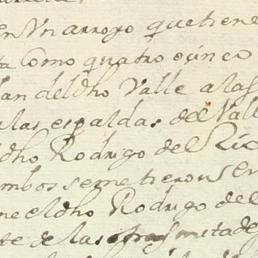 en Un arroyo que tiene
ta Como quatro o çinco
an del dho Valle a las
las espaldas del Vall
dho Rodrigo del Rio
mbos se metieron en
ne el dho Rodrigo del
te de las otras mitade